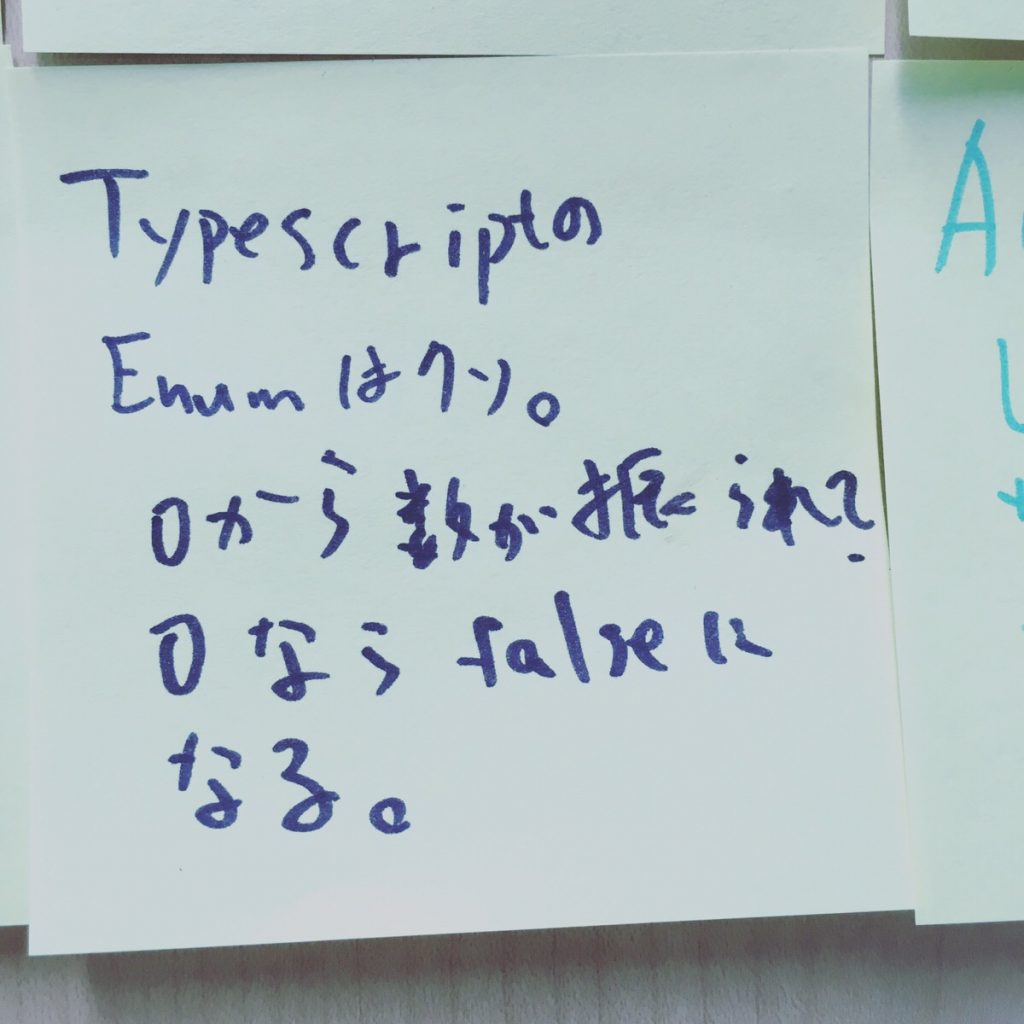 Typescriptの
Enumはクソ。
0から数が振られて
0ならfalseに
なる。
A